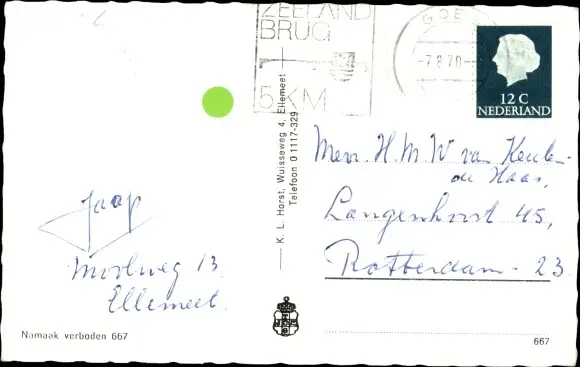 ZEELAND
BRUG
5 KM
GOES
-7.8.70-
12 C
NEDERLAND
K. L. Horst, Wuisseweg 4, Ellemeet
Telefoon 0 1117-329
Mevr. H. M. W van Keulen-
de Haas,
Langenhorst 45,
Rotterdam - 23
Jaap
Moolweg 13
Ellemeet.
Namaak verboden 667
667